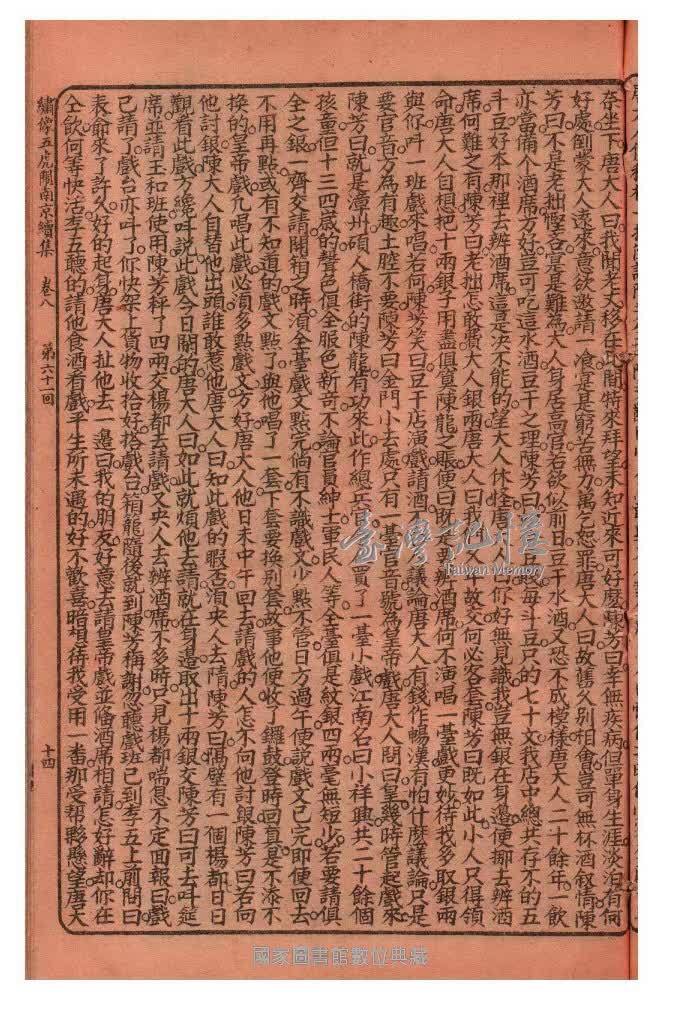 奈坐下唐大人曰我聞老丈移在此間特來拜望未知近來可好麽陳芳曰幸無疾病但單身生涯淡泊有何
好處倒蒙大人遠來意欲邀請一飡寔是窮苦無力萬乞恕罪唐大人曰故舊久別相會豈可無杯酒叙情陳
芳曰不是老拙慳吝寔是難為大人身居高官若欲似前日豆干水酒又恐不成模樣唐大人二十餘年一飲
亦當備個酒席方好豈可吃這水酒豆干之理陳芳曰賤每斗豆只的七十文我店中總共存不的五
斗豆好本那裡去辨酒席這是决不能的望大人休怪唐大人你好無見識我豈無銀在身邉便挪去辨酒
席何難之有陳芳曰老拙怎敢費大人銀兩唐大人曰我故交何必客套陳芳曰既如此小人只得領
命唐大人自想把十兩銀子用盡俱算陳龍之賬便曰既要辨酒席何不演唱一臺戲更妙待我多取銀兩
與你呌一班戲來唱若何陳芳笑曰豆干店演戲請酒議論唐大人有錢作暢漢有怕什麽議論只是
要官音方為有趣土腔不要陳芳曰金門小去處只有一臺官音號為皇帝戲唐大人問曰皇幾時管起戲來
陳芳曰就是漳州碩人橋街的陳龍有功來此作總兵買了一臺小戲江南名曰小祥興共二十餘個
孩童但十三四歲的聲色俱全服色新奇不論官員紳士軍民人等全臺俱是紋銀四兩毫無短少若要請俱
全之銀一齊交請開箱之時湏全臺戲文點完倘有不識戲文少點不管日方過午便説戲文已完即便回去
不用再點或有不知道的戲文點了與他唱了一套下套要換別套故事他便收了鑼鼓登時回真是不添不
換的皇帝戲凢唱此戲必湏多點戲文方好唐大人他日未中午回去請戲的人怎不向他討銀陳芳曰若向
他討銀陳大人自替他出頭誰敢惹他唐大人曰知此戲的暇否湏央人去隋陳芳曰隔壁有一個楊都日日
觀看此戲方纔呌説此戲今日閒的唐大人曰如此就煩他去請就在身邉取出十兩銀交陳芳曰可去呌筵
席並請王和班使用陳芳秤了四兩交楊都去請戲又央人去辨酒席不多時只見楊都喘息不定面報曰戲
已請了戲台亦呌了你快架上貨物收拾好搭戲台箱籠隨後就到陳芳稱謝忽聽戲班已到李五上前問曰
表爺來了許久好的起身唐大人扯他去一邉曰我的朋友好意去請皇帝戲並俻酒席相請怎好辭却你在
仝飲何等快活李五聽的請他食酒看戲乎生所未遇的好不歡喜暗想待我受用一番那受帮夥懸望唐大
繡像五虎鬧南京續集 卷八 第六十一回 十四
臺灣記憶
Taiwan Memory
國家圖書館數位典藏